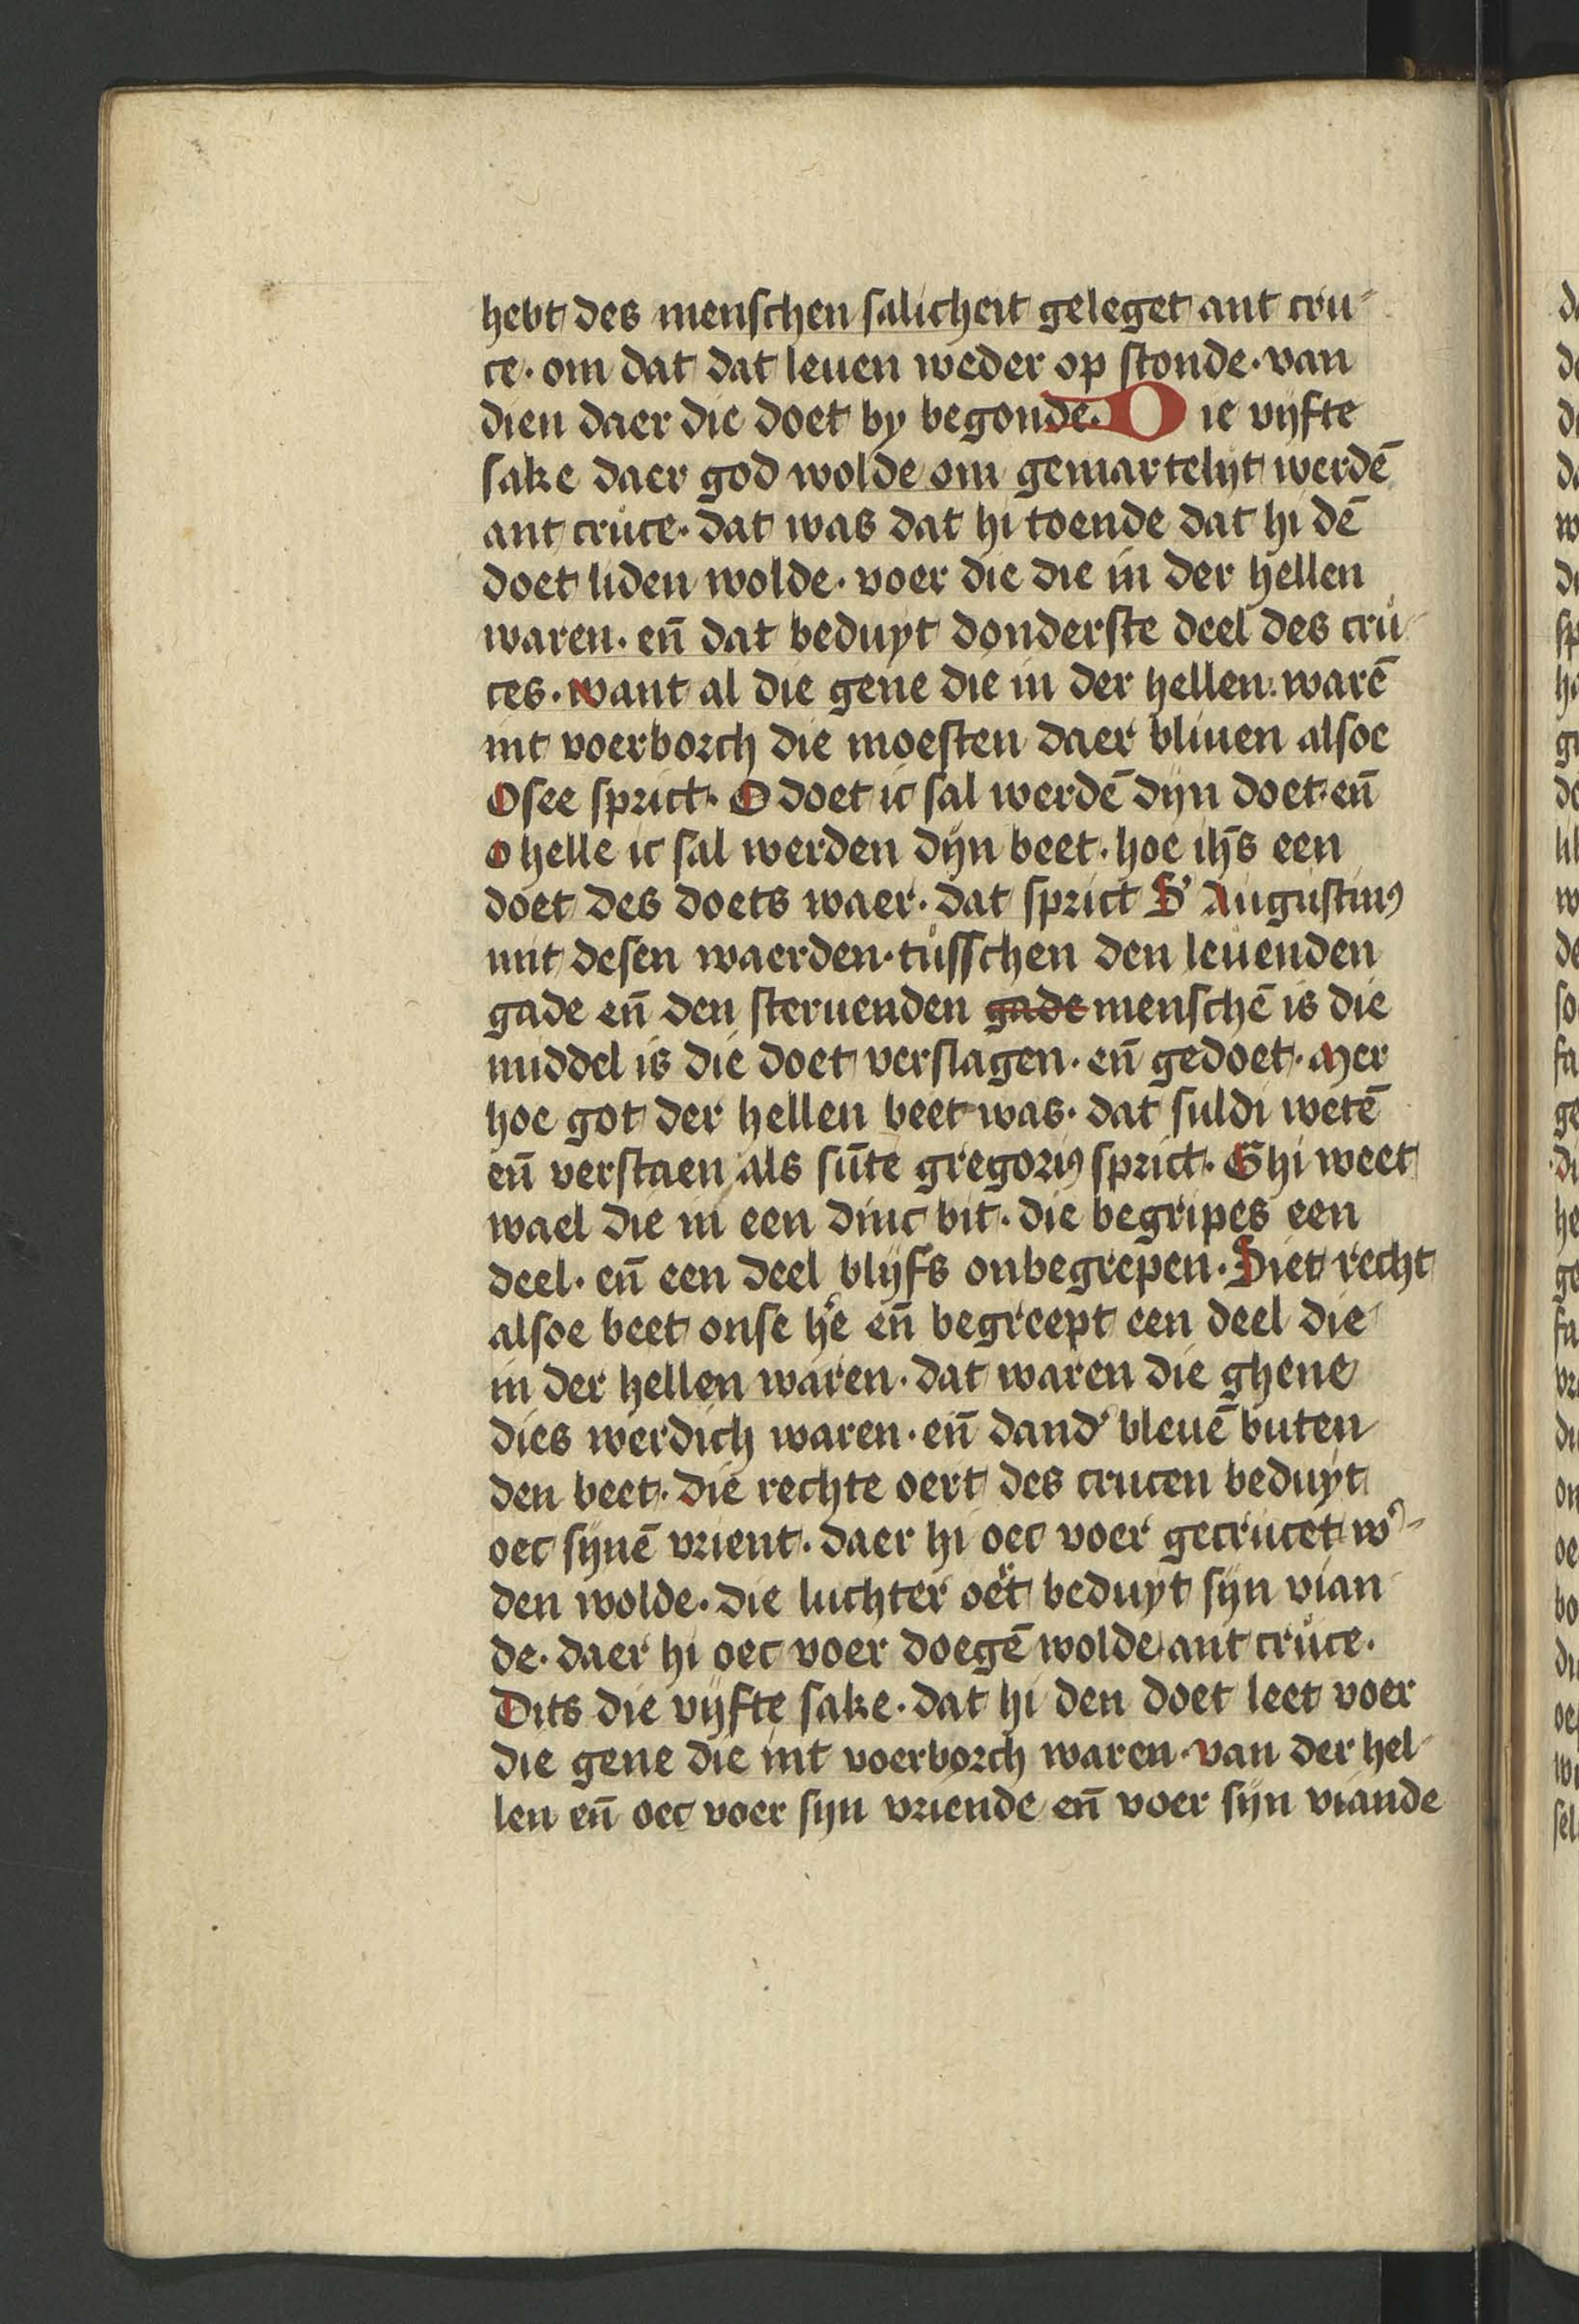 hebt des menschen salicheit geleget ant cru-
ce. om dat dat leuen weder op stonde. van
dien daer die doet by begonde. Die vijfte
sake daer god wolde om gemartelijt werdē
ant cruce. dat was dat hi toende dat hi dē
doet liden wolde. voer die die in der hellen
waren. en̄ dat beduyt donderste deel des cru-
ces. want al die gene die in der hellen. warē
int voerborch die moesten daer bliuen alsoe
Osee sprict. O doet ic sal werdē dijn doet. en̄
O helle ic sal werden dijn beet. hoe ih̄s een
doet des doets waer. dat sprict S' Augustinꝰ
mit desen waerden. tusschen den leuenden
gade en̄ den steruenden ~~gade~~ menschē is die
middel is die doet verslagen. en̄ gedoet. Mer
hoe got der hellen beet was. dat suldi wetē
en̄ verstaen als sūte gregoriꝰ sprict. Ghi weet
wael die in een dinc bit. die begripes een
deel. en̄ een deel blijfs onbegrepen. Siet recht
alsoe beet onse h'e en̄ begreept een deel die
in der hellen waren. dat waren die ghene
dies werdich waren. en̄ dand' bleuē buten
den beet. Die rechte oert des crucen beduyt
oec sijnē vrient. daer hi oec voer gecrucet w'-
den wolde. die luchter oe't beduyt sijn vian
de. daer hi oec voer doegē wolde ant cruce.
Dits die vijfte sake. dat hi den doet leet voer
die gene die int voerborch waren. van der hel-
len en̄ oec voer sijn vriende en̄ voer sijn viande